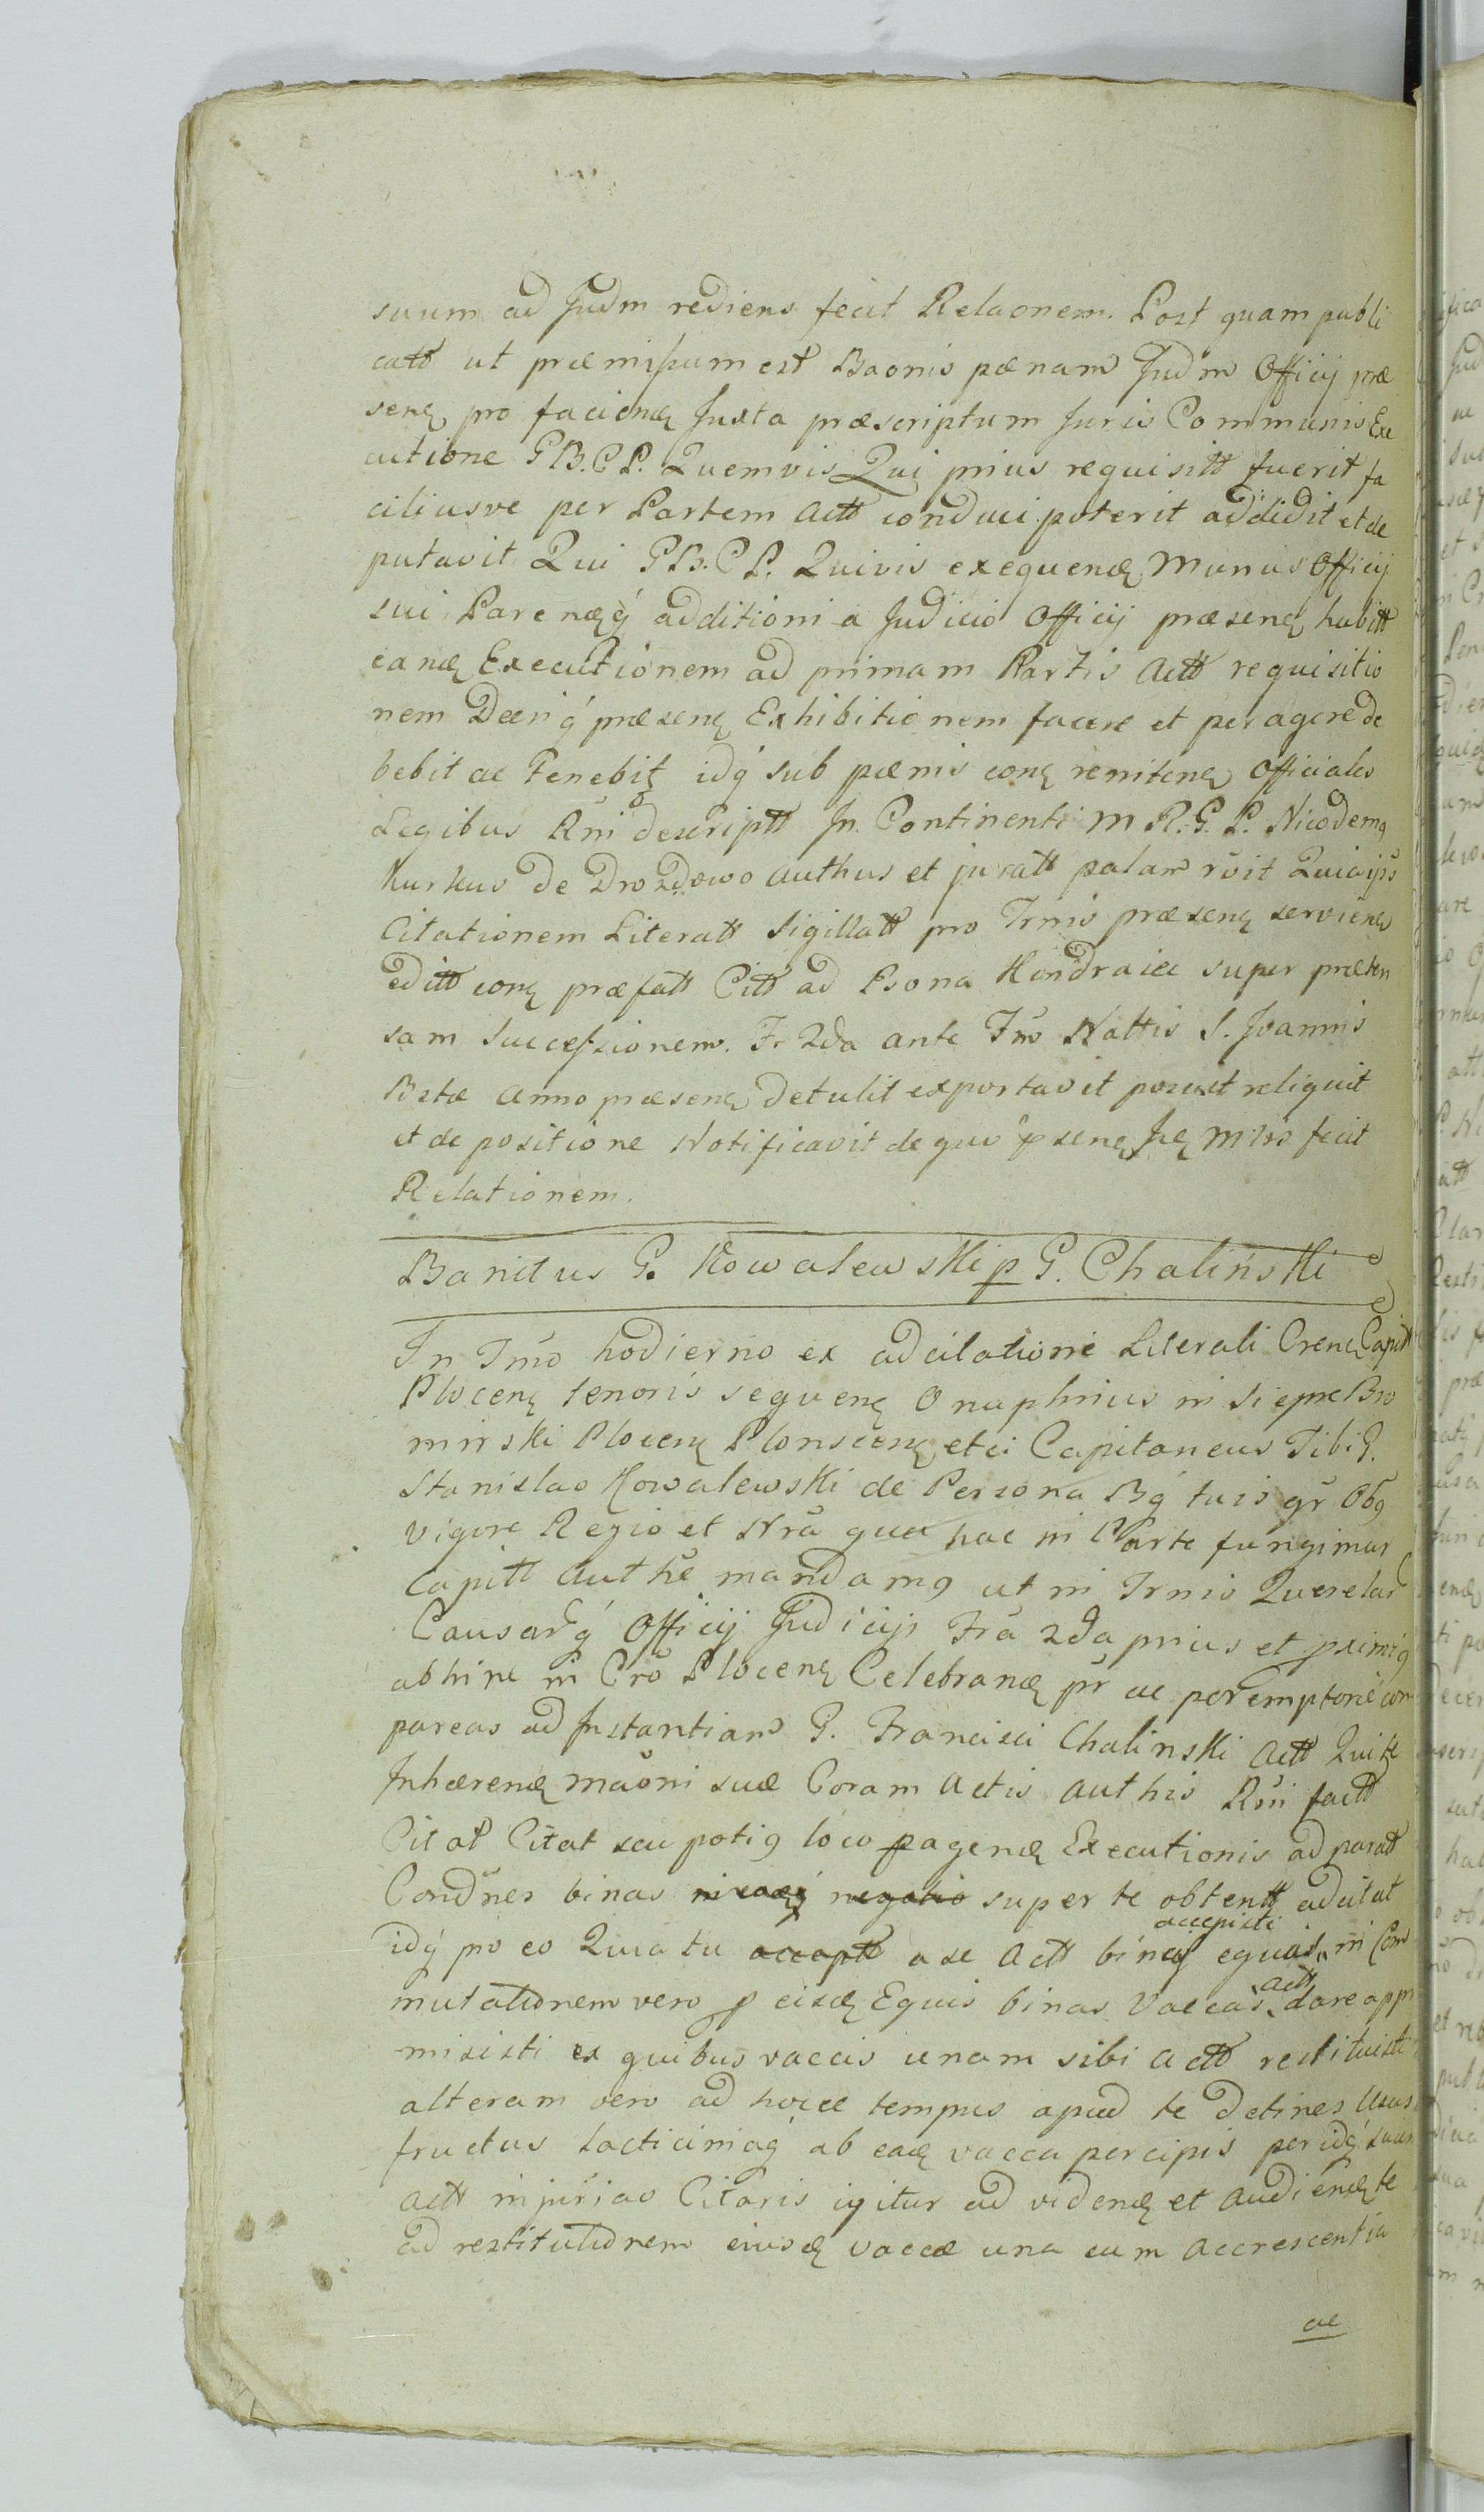 suum ad Judm rediens fecit Relaonem. Post quam publi
catt ut præmissum est Baonis pænam Judm Officij præ
senȩ pro facienȩ Juxta præscriptum Juris Communis Exe
cutione GB.CP. Quemvis Qui prius requisitt fuerit fa
ciliusve per Partem Actt conduci poterit addidit et de
putavit Qui GB.CP. Quivis exequenȩ Munus Officij
sui Parenȩq́ additioni a Judicio Officij præsenȩ habitt
eanȩ Executionem ad primam Partis Actt requisitio
nem Decrīq́ præsenȩ Exhibitionem facere et peragere de
bebit ac Tenebitȩ idq́ sub pænis conȩ renitenȩ Officiales
Legibus Rni descriptt In Continenti M R.G.P. Nicodemꝯ
Kurkus de Drozdowo authus et juratt palam rūit Quia ijs
Citationem Literatt Sigillatt pro Trnis præsenȩ servienȩ
editt conȩ præfatt Citt ad Bona Kondraiec super præten
sam Successionem. Fr 2da ante Fm̄ Nattis S. Joannis
Bstæ Anno præsenȩ detulit exportavit posuit reliquit
et de positione Notificavit de quo p̄senȩ Jcȩ Mtrs fecit
Relationem.
Banitus G. Kowalewski p G. Chaliński
In Tm̄o hodierno ex adcitatione Literali Crenȩ Capitt
Plocenȩ tenoris sequenȩ Onuphrius in Siepre Bro
mirski Plocenȩ Plonscenȩ etci Capitaneus Tibi G.
Stanislao Kowalewski de Persona Bq́ tuis gr̄ Obꝯ
vigore Regio et Nrā qua hac in Parte fungimur
Capitt Auth̄e mandamꝯ ut in Trnis Querelar
Causarq́ Officij Judicijs Frā 2da prius et pximiꝯ
abhinc in Crō Plocenȩ Celebranȩ pr̄ ac peremptorie com
pareas ad Instantiam G. Francisci Chalinski Actt Qui te
Inhærenȩ maōni suæ Coram Actis Authis Rn̄i factt
Citat Citat seu potiꝯ loco pagenȩ Executionis ad paratt
Cond̄nes binas super te obtentt adcitat
idq́ pro eo Quia tu a se Actt binas equas accepisti in Com
mutationem vero p eisȩ Equis binas Vaccas Actt dare appro
misisti ex quibus vaccis unam sibi Actt restituisti
alteram vero ad hocce tempus apud te detines Usus
fructus Lacticiniaq́ ab eaȩ vacca percipis per idq́ suam
Actt injuriae Citaris igitur ad videnȩ et Audienȩ te
ad restitutionem eiusȩ vaccæ una cum Accrescentia
ac